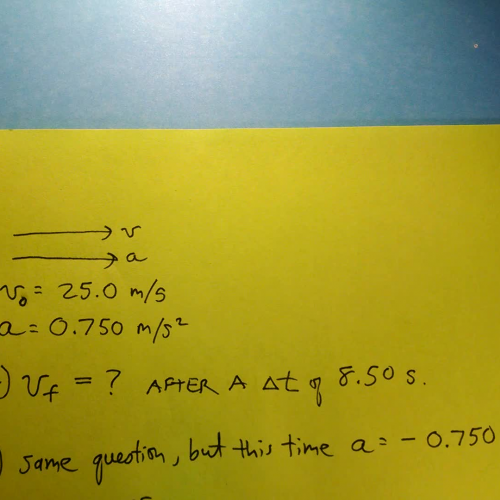 v
a
v₀ = 25.0 m/s
a = 0.750 m/s²
) v_f = ? AFTER A Δt of 8.50 s.
) same question, but this time a = - 0.750